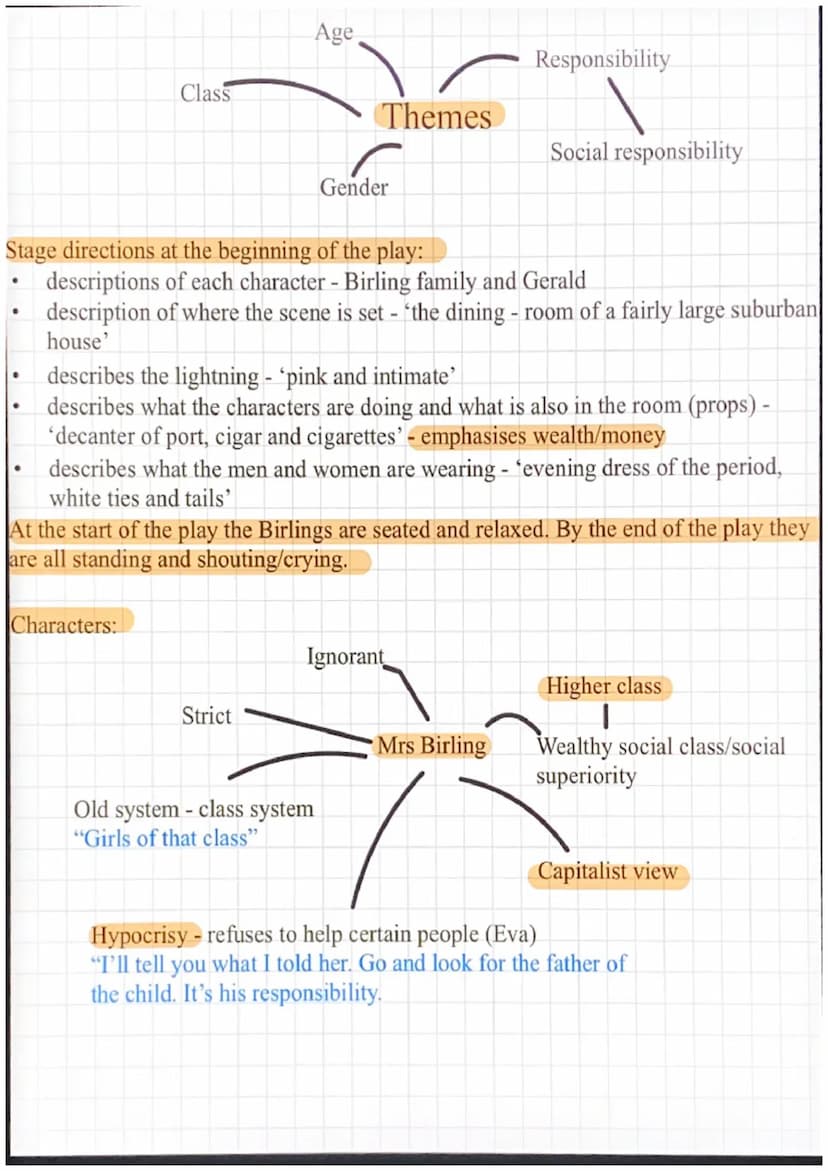 Age
Responsibility
Class
Themes
Social responsibility
Gender
Stage directions at the beginning of the play:
• descriptions of each character - Birling family and Gerald
• description of where the scene is set - ‘the dining - room of a fairly large suburban
house’
• describes the lightning - ‘pink and intimate’
• describes what the characters are doing and what is also in the room (props) -
‘decanter of port, cigar and cigarettes’ - emphasises wealth/money
• describes what the men and women are wearing - ‘evening dress of the period,
white ties and tails’
At the start of the play the Birlings are seated and relaxed. By the end of the play they
are all standing and shouting/crying.
Characters:
Ignorant
Higher class
Strict
Mrs Birling
Wealthy social class/social
superiority
Old system - class system
“Girls of that class”
Capitalist view
Hypocrisy - refuses to help certain people (Eva)
“I’ll tell you what I told her. Go and look for the father of
the child. It’s his responsibility.